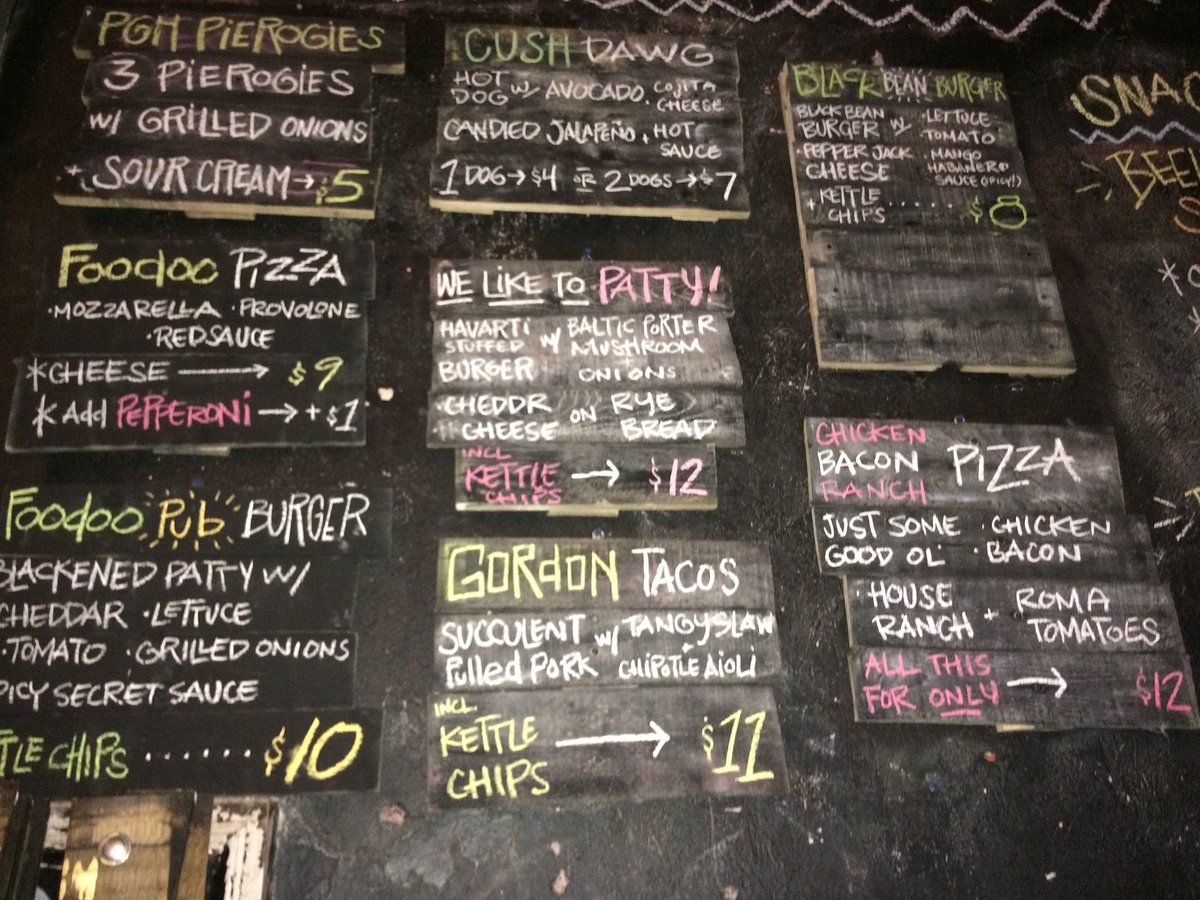 PGH PIEROGIES
3 PIEROGIES
w/ GRILLED ONIONS
+ SOUR CREAM → $5
FOODOO PIZZA
·MOZZARELLA ·PROVOLONE
·RED SAUCE
*CHEESE → $9
*Add PEPPERONI → +$1
FOODOO PUB BURGER
BLACKENED PATTY W/
CHEDDAR ·LETTUCE
·TOMATO ·GRILLED ONIONS
PICY SECRET SAUCE
TLE CHIPS ...... $10
CUSH DAWG
HOT DOG w/ AVOCADO · COJITA CHEESE
CANDIED JALAPEÑO · HOT SAUCE
1 DOG → $4 OR 2 DOGS → $7
WE LIKE TO PATTY!
HAVARTI STUFFED w/ BALTIC PORTER MUSHROOM
BURGER ONIONS
·CHEDDR CHEESE ON RYE BREAD
INCL
KETTLE CHIPS → $12
GORDON TACOS
SUCCULENT w/ TANGY SLAW
Pulled PORK CHIPOTLE AIOLI
INCL.
KETTLE CHIPS → $11
BLACK BEAN BURGER
BLACK BEAN ·LETTUCE
BURGER W/ ·TOMATO
·PEPPER JACK CHEESE ·MANGO HABANERO SAUCE (SPICY!)
+ KETTLE CHIPS ...... $8
CHICKEN
BACON PIZZA
RANCH
JUST SOME ·CHICKEN
GOOD OL' ·BACON
·HOUSE RANCH + ROMA TOMATOES
ALL THIS
FOR ONLY → $12
SNAC
BEE
S